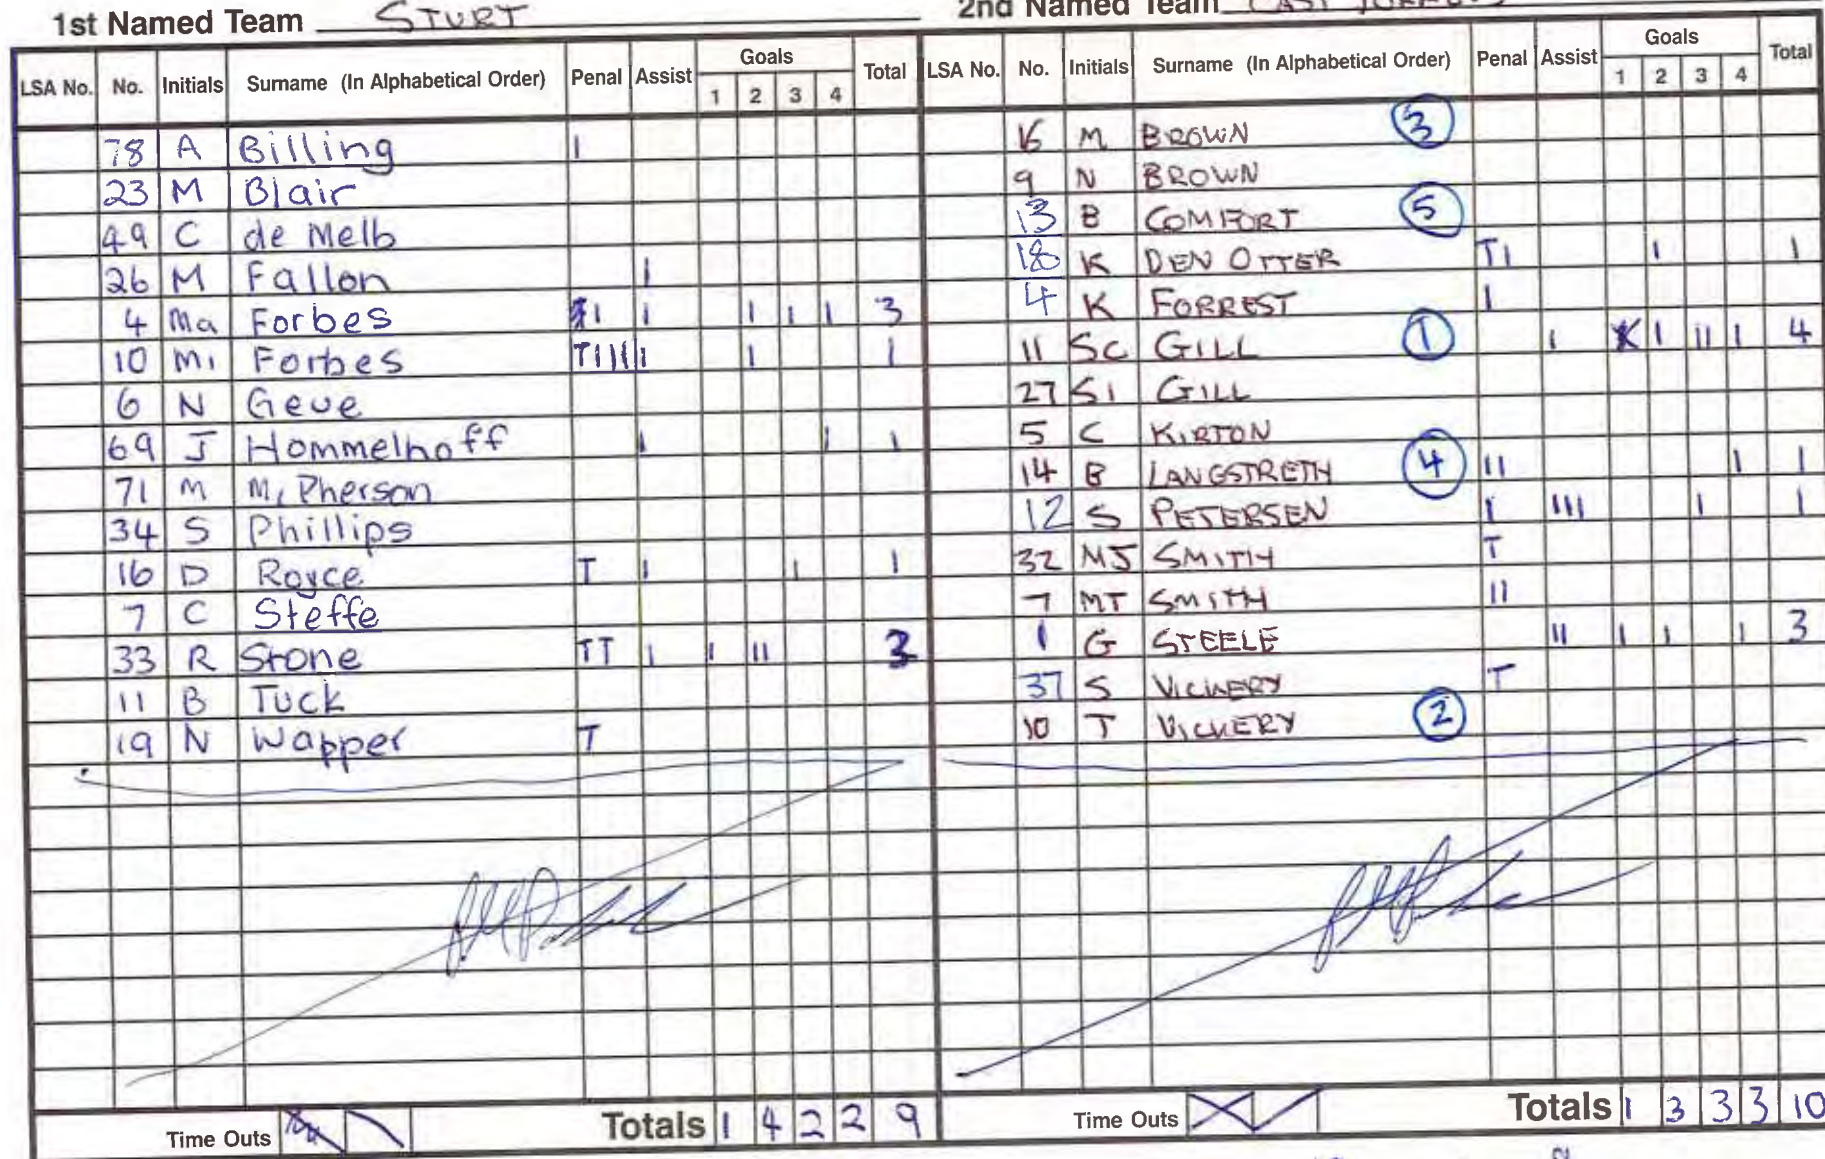 1st Named Team STURT
LSA No. No. Initials Surname (In Alphabetical Order) Penal Assist Goals 1 2 3 4 Total
78 A Billing I
23 M Blair
49 C de Melb
26 M Fallon I
4 Ma Forbes I I I I I 3
10 Mi Forbes TIII I I I
6 N Geue
69 J Hommelhoff I I I
71 M McPherson
34 S Phillips
16 D Royce T I I I
7 C Steffe
33 R Stone TT I I II 3
11 B Tuck
19 N Wapper T
Time Outs Totals 1 4 2 2 9
2nd Named Team
LSA No. No. Initials Surname (In Alphabetical Order) Penal Assist Goals 1 2 3 4 Total
16 M BROWN 3
9 N BROWN
13 B COMFORT 5
18 K DEN OTTER TI I I
4 K FORREST I
11 SC GILL 1 I I II I 4
27 SI GILL
5 C KIRTON
14 B LANGSTRETH 4 II I I
12 S PETERSEN I III I I
32 MJ SMITH T
7 MT SMITH II
1 G STEELE II I I I 3
37 S VICKERY T
10 T VICKERY 2
Time Outs Totals 1 3 3 3 10